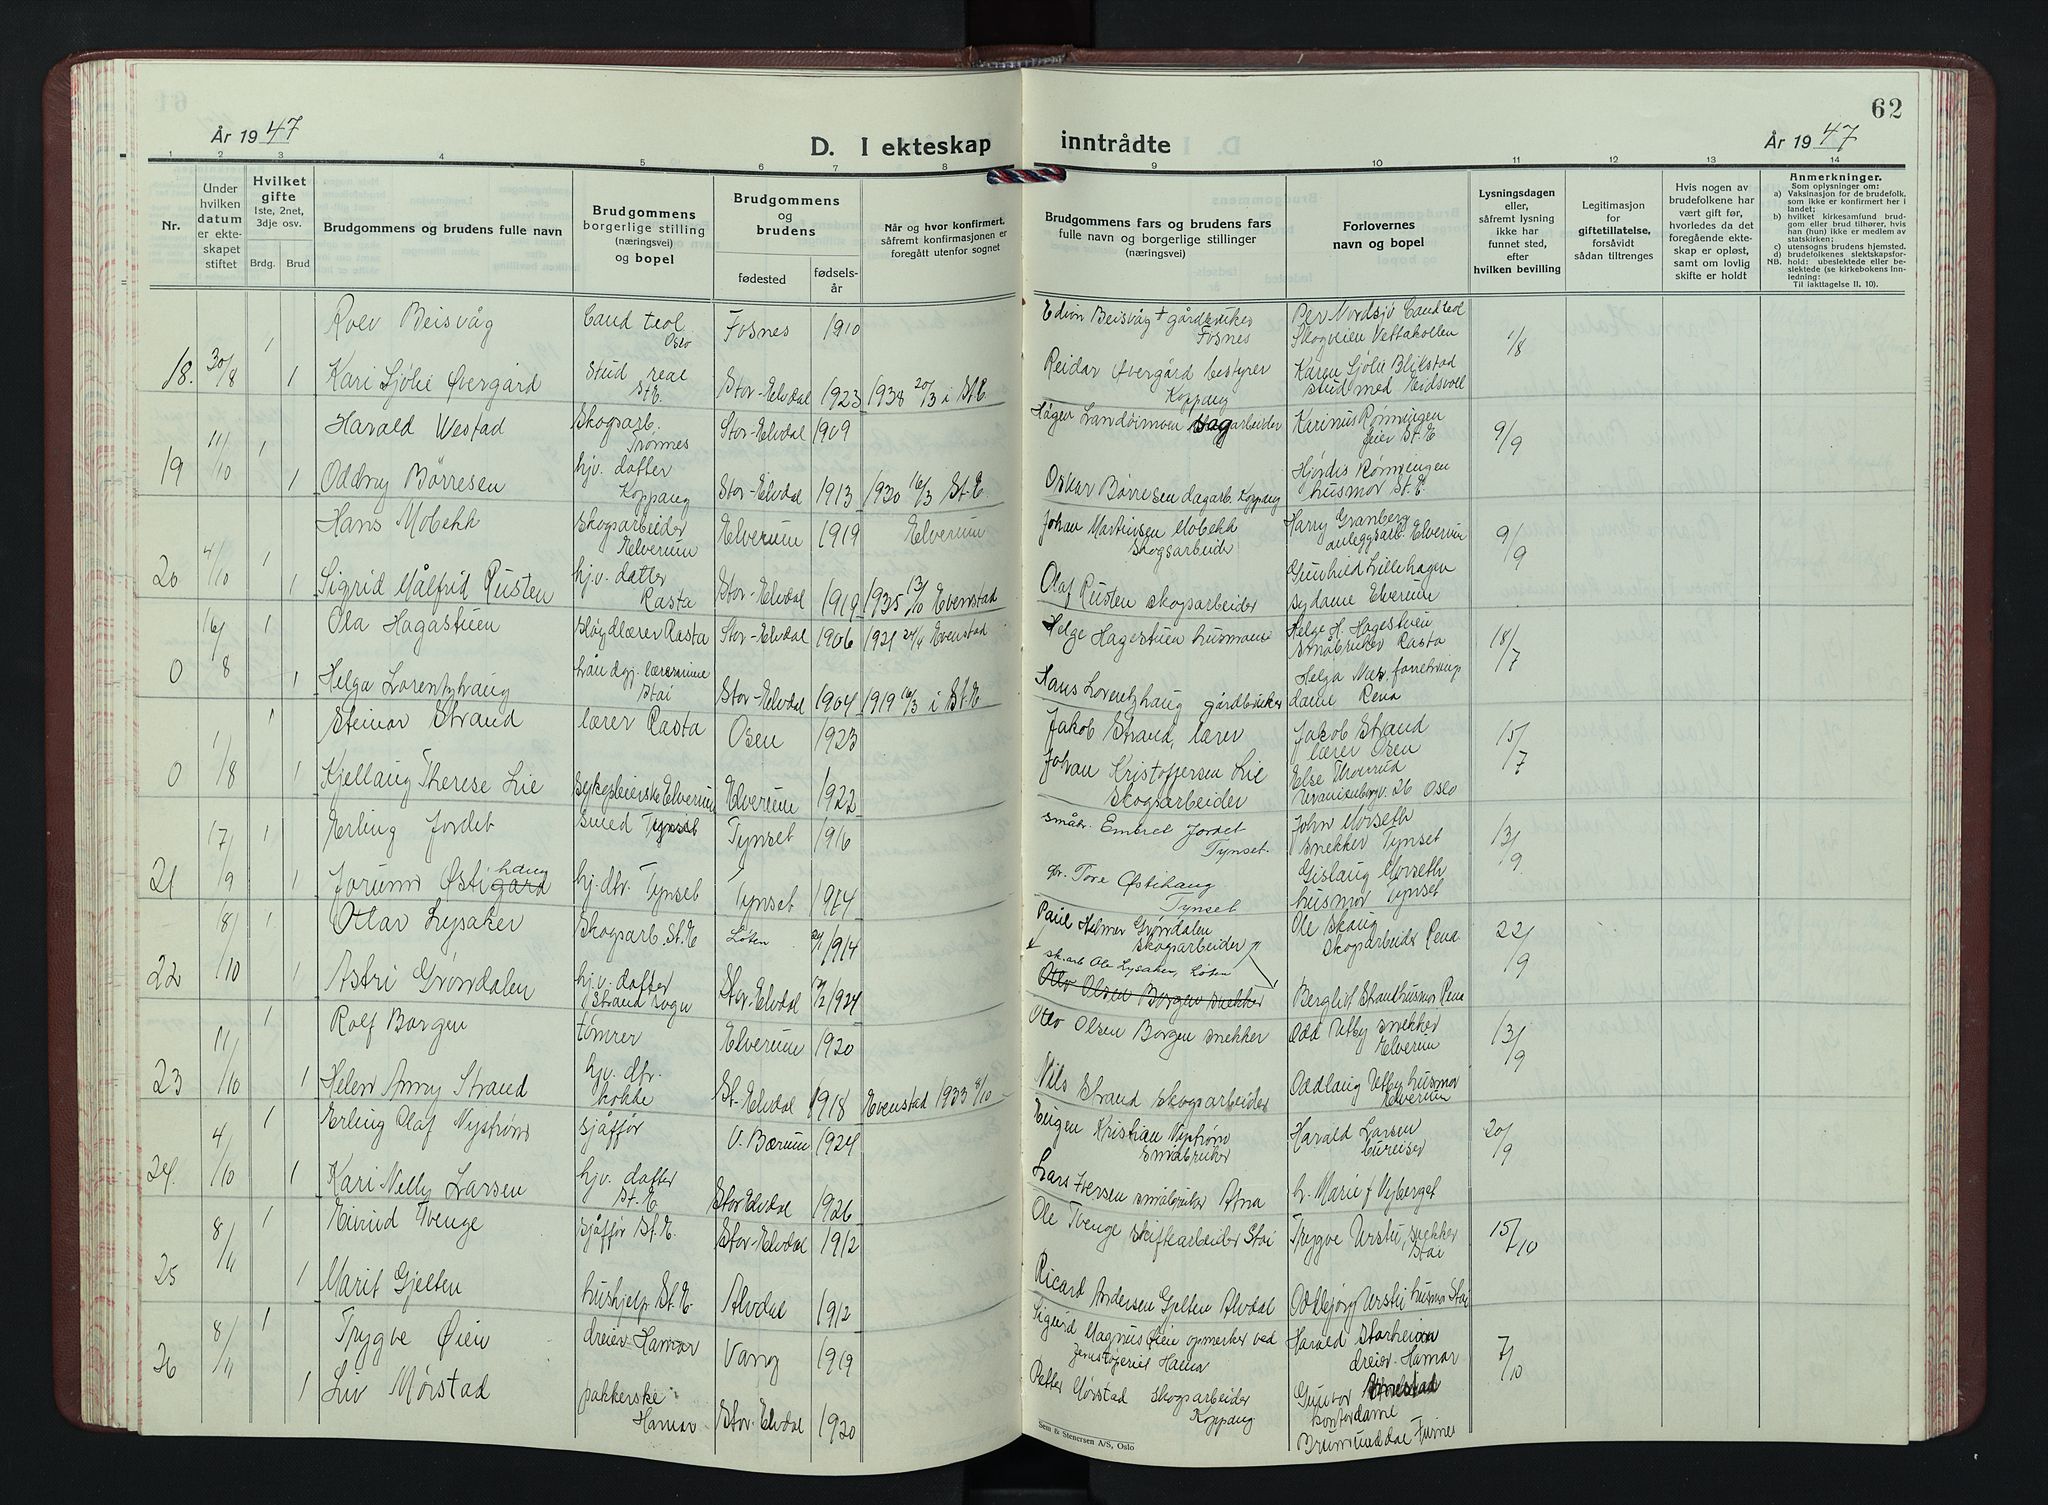 62
År 1947
D. I ekteskap inntrådte
År 1947
1 2 3 4 5 6 7 8 9 10 11 12 13 14
Nr.
Under hvilken datum er ekteskapet stiftet
Hvilket gifte
1ste, 2net, 3dje osv.
Brdg. Brud
Brudgommens og brudens fulle navn
Brudgommens borgerlige stilling (næringsvei) og bopel
Brudgommens og brudens
fødested fødselsår
Når og hvor konfirmert, såfremt konfirmasjonen er foregått utenfor sognet
Brudgommens fars og brudens fars fulle navn og borgerlige stillinger (næringsvei)
Forlovernes navn og bopel
Lysningsdagen eller, såfremt lysning ikke har funnet sted, efter hvilken bevilling
Legitimasjon for giftetillatelse, forsåvidt sådan tiltrenges
Hvis nogen av brudefolkene har vært gift før, hvorledes da det foregående ekteskap er opløst, samt om lovlig skifte er holdt
Anmerkninger.
Som oplysninger om:
a) Vaksinasjon for de brudefolk, som ikke er konfirmert her i landet;
b) hvilket kirkesamfund brudgom eller brud tilhører, hvis han (hun) ikke er medlem av statskirken;
c) utensogns brudens hjemsted.
d) brudefolkenes slektskapsforhold: ubeslektede eller beslektede (se kirkebokens innledning:
NB.
Til iakttagelse II. 10).
Rolv Beisvåg Cand teol Oslo Fosnes 1910 Edvin Beisvåg + gårdbruker Fosnes Per Nordsjö Cand teol Skogveien Vettakollen
18. 30/8 1 1 Kari Sjölie Övergård Stud real St.E. Stor-Elvdal 1923 1938 20/3 i St.E. Reidar Övergård bestyrer Koppang Karen Sjölie Blikstad stud med Eidsvoll 1/8
Harald Westad Skogsarb. Trønnes Stor-Elvdal 1909 Hågen arbeider Karinus Rønningen St.E
19 11/10 1 1 Oddny Børresen hjv. datter Koppang Stor-Elvdal 1913 1930 16/3 St.E. Oskar Børresen dagarb. Koppang Hjördis Rønningen husmor St.E. 9/9
Hans Mobekk skogsarbeider Elverum Elverum 1919 Elverum Johan Martinsen Mobekk skogsarbeider Harry Granberg anleggsarb. Elverum
20 4/10 1 1 Sigrid Målfrid Rusten hj.v. datter Rasta Stor-Elvdal 1919 1935 13/10 Evenstad Olaf Rusten skogsarbeider Gunhild Lillehagen sydame Elverum 9/9
Ola Hagastuen sløydlærer Rasta Stor-Elvdal 1906 1921 Evenstad Helge Hagestuen husmann Helge H. Hagestuen småbruker Rasta
0 16/8 1 1 Helga Lorentzhaug håndgj. lærerinne Stai Stor-Elvdal 1904 1919 16/3 i St.E Hans Lorentzhaug gårdbruker Helga forretningsdame Rena 18/7
Steinar Strand lærer Rasta Osen 1923 Jakob Strand, lærer Jakob Strand lærer Osen
0 1/8 1 1 Kjellaug Therese Lie sykepleierske Elverum Elverum 1922 Johan Kristoffersen Lie Skogsarbeider Else Uranienborgv. 26 Oslo 15/7
Erling Jordet smed Tynset Tynset 1916 småbr. Embret Jordet Tynset. John Morseth snekker Tynset
21 17/9 1 1 Jorunn Östigård haug hj. dtr. Tynset Tynset 1924 gbr. Tore Østihaug Tynset Gislaug Morseth husmor Tynset 13/9
Otlar Lysaker Skogsarb. St.E Løten 1914 Paul Helmer Grøndalen skogsarbeider Ole Skaug Skogsarbeider Rena
22 18/10 1 1 Astri Grøndalen hj.v. datter Strand sogn Stor-Elvdal 1924 sk.arb Ole Lysaker, Løten Otto Olsen Borgen snekker Bergliot Strand husmor Rena 22/9
Rolf Borgen tömrer Elverum 1920 Otto Olsen Borgen snekker Odd Utby snekker Elverum
23 11/10 1 1 Helen Anny Strand hjv. dtr. kokke St.-Elvdal 1918 Evenstad 1933 8/10 Nils Strand Skogsarbeider Oddlaug Utby husmor Elverum 13/9
Erling Olaf Nyström sjåffør V. Bærum 1924 Eugen Kristian Nystrøm småbruker Harald Larsen
24. 4/10 1 1 Kari Nelly Larsen hjv. datter St.E Stor Elvdal 1926 Lars Iversen småbruker Atna Marie Nyberget 20/9
Eivind Tvenge sjåffør St.E. Stor-Elvdal 1912 Ole Tvenge skiftarbeider Stai Trygve Urstu, snekker Stai
25 8/11 1 1 Marit Gjelten hushjelp St.E Alvdal 1912 Ricard Andersen Gjelten Alvdal Oddbjörg Urstu husmor Stai 15/10
Trygve Öien dreier Hamar Vang 1919 Sigurd Magnus Øien opmerker ved Jernstøperiet Hamar Harald Storheim dreier Hamar
26 8/11 1 1 Liv Mørstad pakkerske Hamar Stor-Elvdal 1920 Petter Mørstad Skogsarbeider Koppang Gunvor kontordame Brumunddal Furnes 7/10
Sem & Stenersen A/S, Oslo